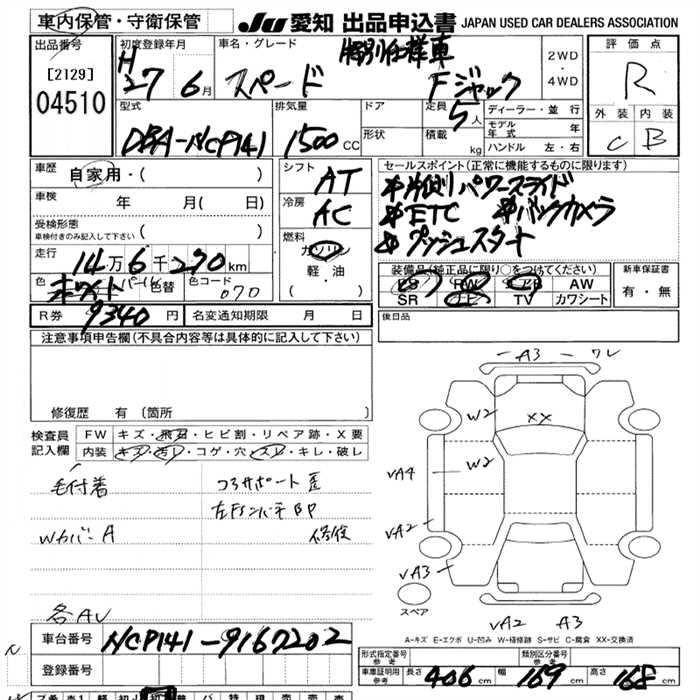 車内保管・守衛保管
JU 愛知 出品申込書 JAPAN USED CAR DEALERS ASSOCIATION
出品番号
[2129]
04510
初度登録年月
H
27 6月
車名・グレード
特別仕様車
スペード Fジャック
2WD
・
4WD
評価点
R
外装 内装
C B
型式
DBA-NCP141
排気量
1500CC
ドア
形状
定員
5人
積載 kg
ディーラー・並行
モデル年式 年
ハンドル 左・右
車歴
自家用・( )
車検 年 月( 日)
受検形態
車検付きのみ記入して下さい ( )
走行
14万6千270km
色
ホワイト パール 色替
色コード
070
シフト
AT
冷房
AC
燃料
ガソリン
軽・油
( )
セールスポイント(正常に機能するものに限ります)
※片側パワースライド
※ETC ※バックカメラ
※プッシュスタート
装備品(純正品に限り○をつけてください)
PS PW エアB AW
SR ナビ TV カワシート
新車保証書
有・無
R券 9340円
名変通知期限 月 日
後日品
注意事項申告欄(不具合内容等は具体的に記入して下さい)
修復歴 有〔箇所
検査員
記入欄
FW キズ・飛石・ヒビ割・リペア跡・X要
内装 キズ・汚レ・コゲ・穴・スレ・キレ・破レ
毛付着
Wカバー A
各AU
コアサポート歪
左Fインパネ BP
修復
A3 ワレ
W2
XX
W2
VA4
VA2
VA3
スペア
VA2 A3
A-キズ E-エクボ U-凹み W-補修跡 S-サビ C-腐食 XX-交換済
車台番号
NCP141-9167202
登録番号
形式指定番号
参考
類別区分番号
参考
車庫証明用
参考
長さ 406cm 幅 169cm 高さ 168cm